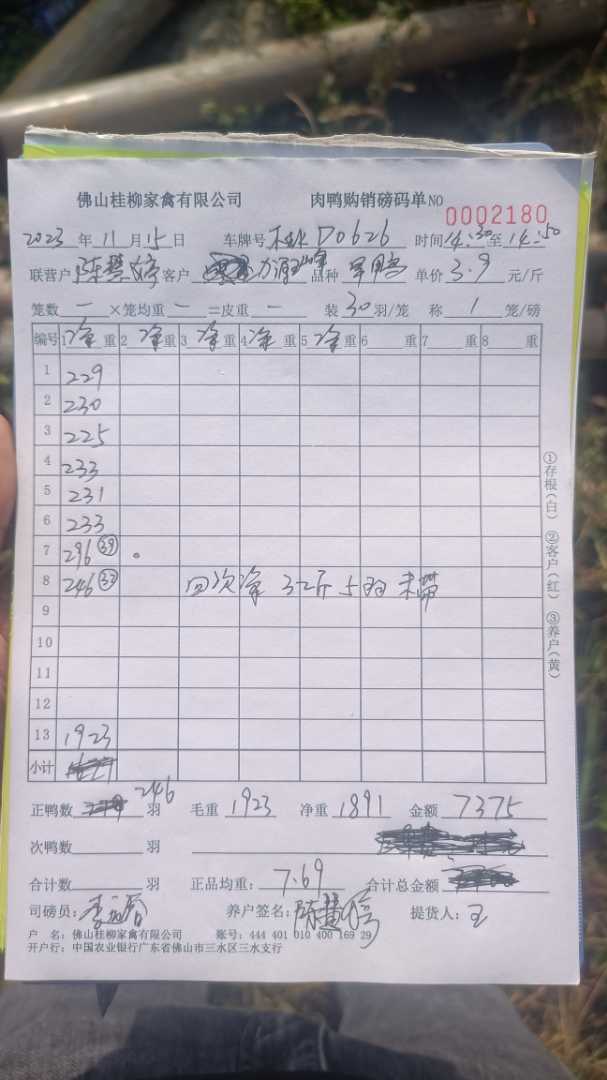 佛山桂柳家禽有限公司 肉鸭购销磅码单NO 0002180
2023 年 11 月 15 日 车牌号 D0626 时间 14:30 至 14:50
联营户 陈慧婷 客户 品种 单价 3.9 元/斤
笼数 一 ×笼均重 一 =皮重 一 装 30 羽/笼 称 1 笼/磅
编号 1 净 重 2 净 重 3 净 重 4 净 重 5 净 重 6 重 7 重 8 重
1 229
2 230
3 225
4 233
5 231
6 233
7 296 39
8 246 33 回次净 32斤 5羽 未带
9
10
11
12
13 1923
小计
正鸭数 246 羽 毛重 1923 净重 1891 金额 7375
次鸭数 羽
合计数 羽 正品均重: 7.69 合计总金额
司磅员: 养户签名: 陈慧婷 提货人: 王
户 名: 佛山桂柳家禽有限公司 账号: 444 401 010 400 169 29
开户行: 中国农业银行广东省佛山市三水区三水支行
①存根(白) ②客户(红) ③养户(黄)